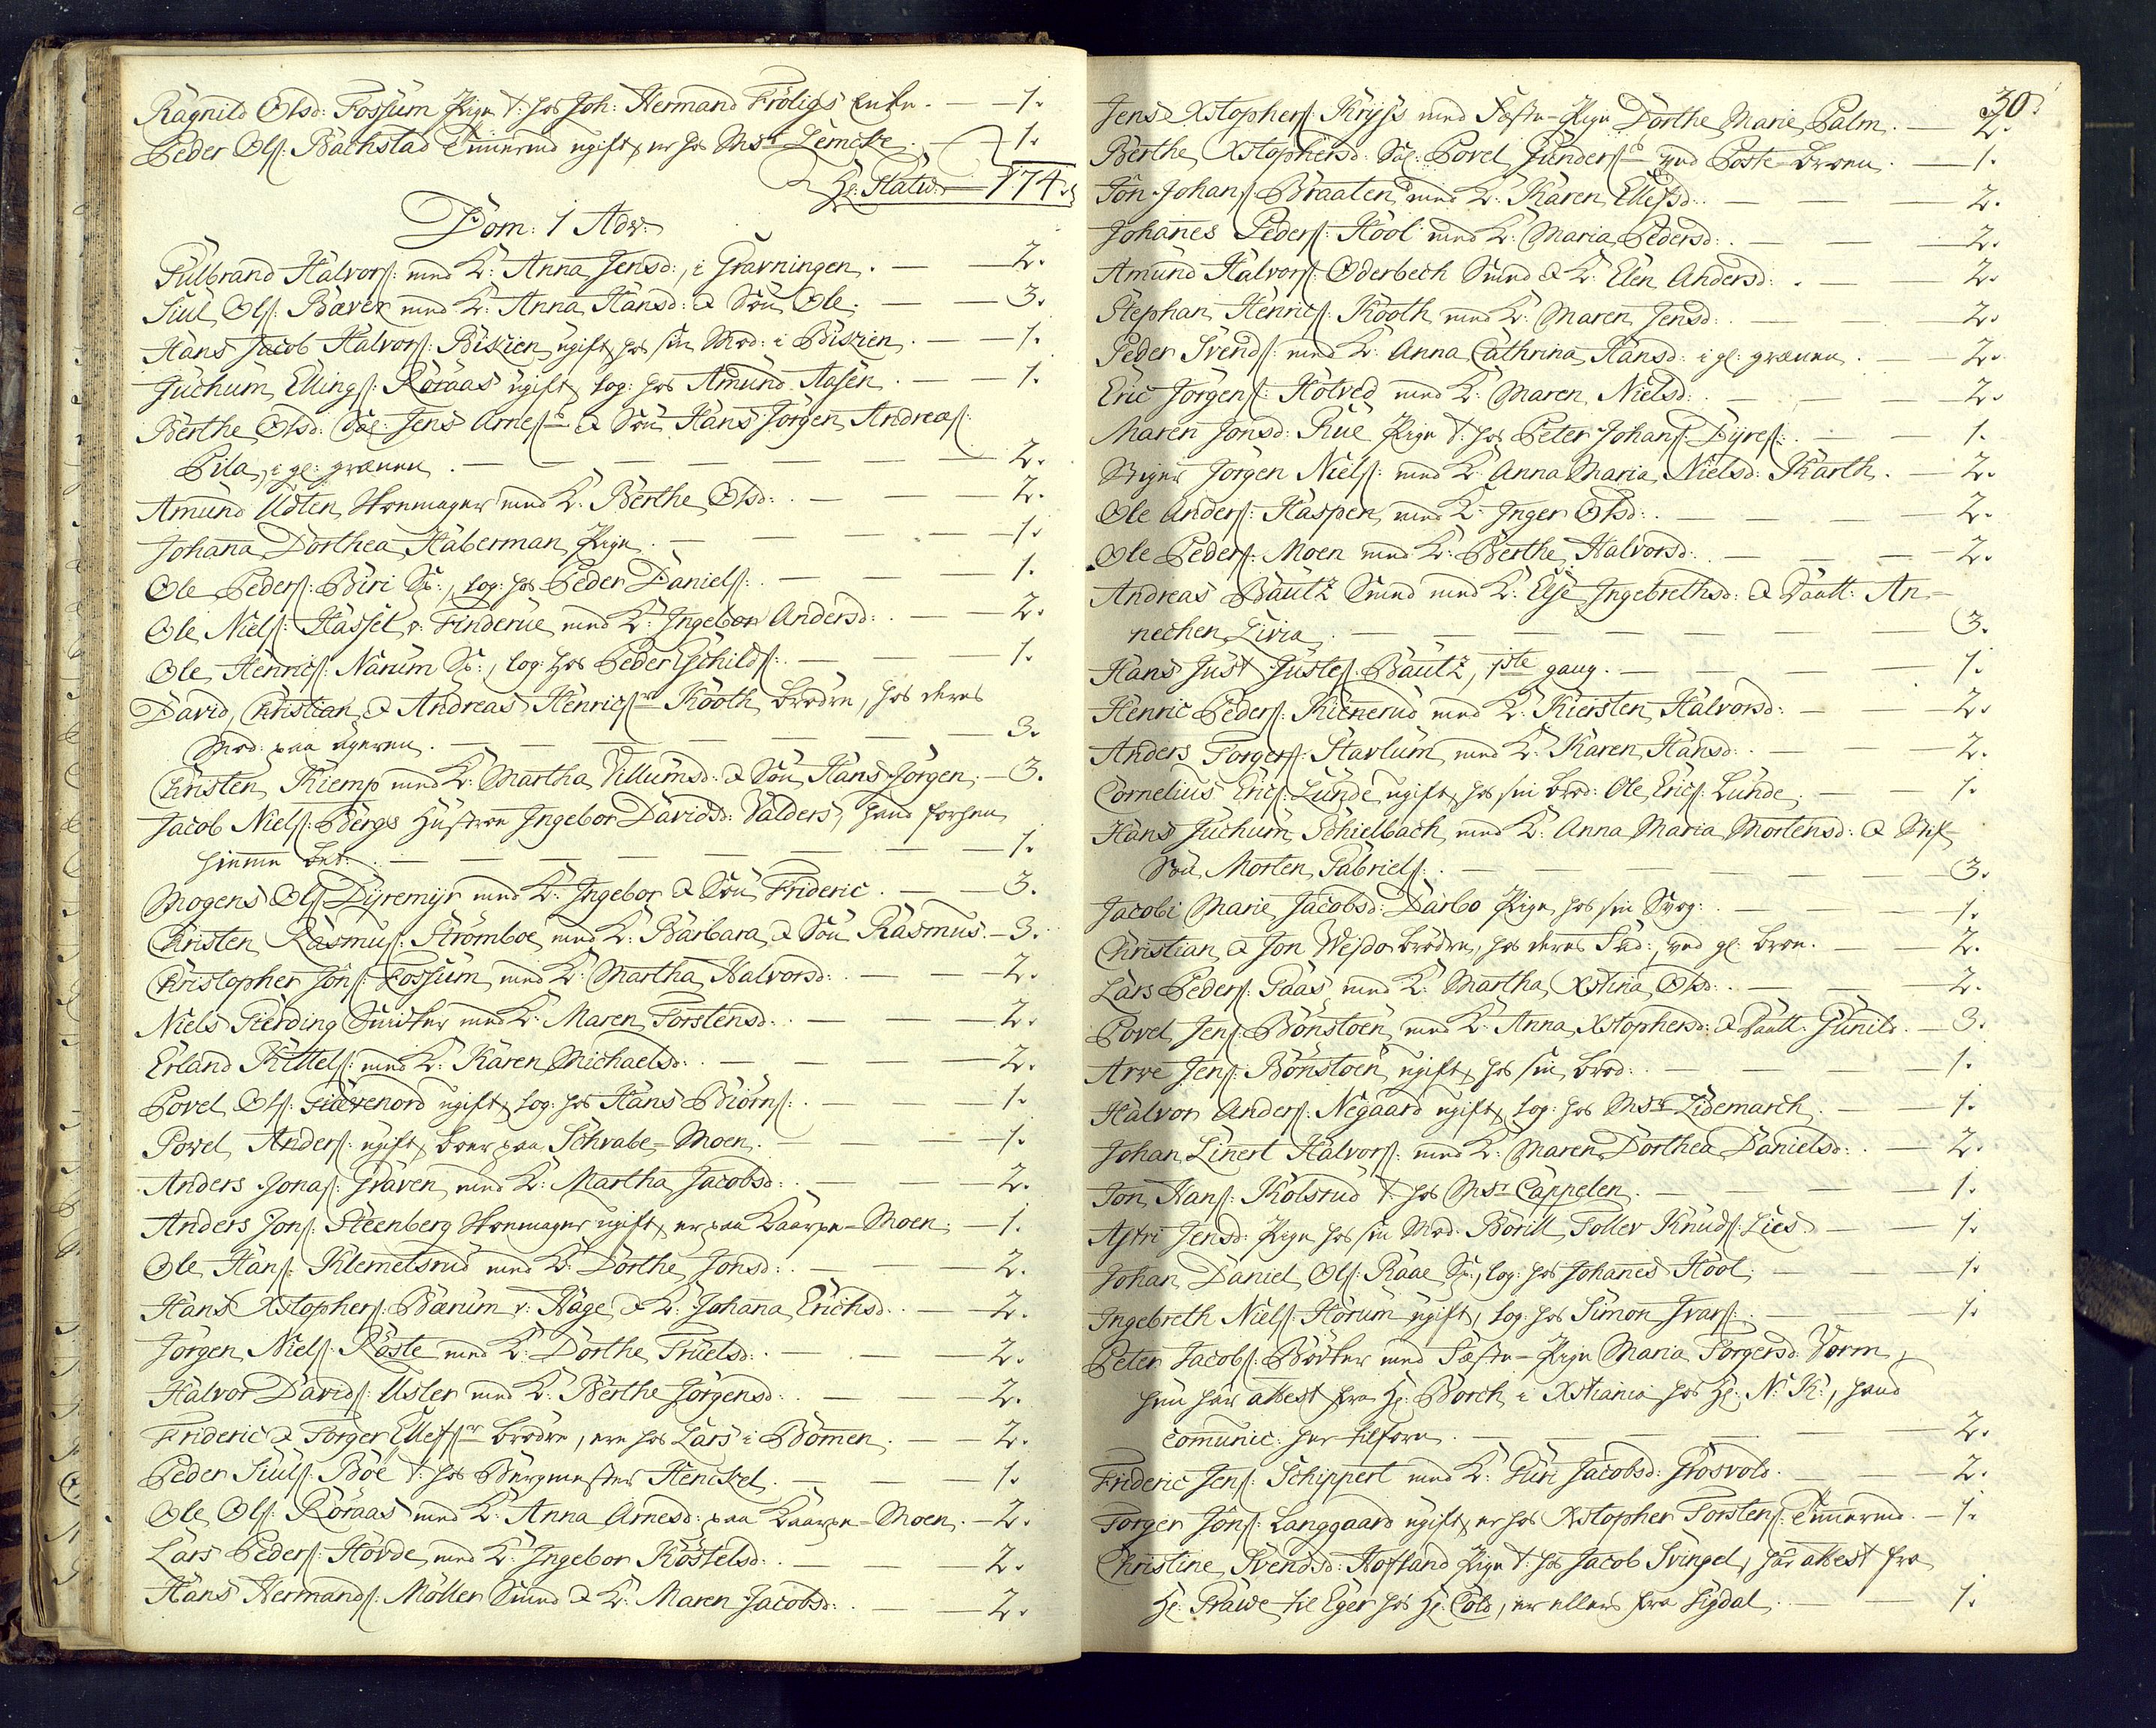 Ragnild Olsd: Fossum Pige t: hos Joh: Hermand Fröligs Enke. — 1.
Peder Ols: Bachstad Timermd ugift, er hos Msr Lemche. — 1.
Hr: Statw. — 174.
Dom: 1 Adv:
Gulbrand Halvors: med K: Anna Jensd:, i Gravningen. — 2.
Siul Ols: Bæver med K: Anna Hansd: & Sön Ole. — 3.
Hans Jacob Halvors: Biskien, ugift, hos sin Mod: i Biskien. — 1.
Juchum Ellings: Röraas ugift, log: hos Amund Aasen. — 1.
Berthe Olsd: Sal: Jens Arnes: & Sön Hans Jörgen Andreas:
Pila, i gl: grænen. — 2.
Amund Udten, Skoemager med K: Berthe Olsd: — 2.
Johanna Dorthea Haberman, Pige. — 1.
Ole Peders: Biri Sk:, log: hos Peder Daniels: — 1.
Ole Niels: Hassel v: Finderue, med K: Ingebor Andersd: — 2.
Ole Henrics: Narum Sk:, log: hos Peder Eschilds: — 1.
David, Christian & Andreas Henricsr Kooth, brödre, hos deres
Mod: paa ageren. — 3.
Christen Kiemp med K: Martha Villumsd: & Sön Hans Jörgen. — 3.
Jacob Niels: Bergs Hustroe Ingebor Davidsd: Valders,
— 1.
Mogens Ols: Dyremyr med K: Ingebor & Sön Frideric. — 3.
Christen Rasmus: Stromboe, med K: Barbara & Sön Rasmus. — 3.
Christopher Jons: Fossum, med K: Martha Halvorsd: — 2.
Niels Gierding Snidker med K: Maren Torstensd: — 2.
Erland Kittels: med K: Karen Michaelsd: — 2.
Povel Ols: ugift, log: hos Hans Biörns: — 1.
Povel Anders: ugift, boer paa Schrabe-Moen. — 1.
Anders Jonas: Graven, med K: Martha Jacobsd: — 2.
Anders Jons: Steenberg Skoemager ugift, er paa Moen. — 1.
Ole Hans: Klemetsrud med K: Dorthe Jonsd: — 2.
Hans Xstophers: Bærum v: Hage & K: Johanna Erichsd: — 2.
Jörgen Niels: Röste med K: Dorthe Truelsd: — 2.
Halvor Davids: Usler med K: Berthe Jörgensd: — 2.
Frideric & Torger Ellefsr brödre, ere hos Lars i Bommen. — 2.
Peder Siuls: Böe t: hos Bergmester Henckel. — 1.
Ole Ols: Röraas med K: Anna Arnesd: paa Moen. — 2.
Lars Peders: Hovde, med K: Ingebor Kostelsd: — 2.
Hans Hermands: Möller Smed & K: Maren Jacobsd: — 2.
30.
Jens Xstophers: Krys med Fæste-Pige Dorthe Marie Palm. — 2.
Berthe Xstophersd: Sal: Povel Gunders: ved Poste-broen. — 1.
Jon Johans: Braaten, med K: Karen Ellefsd: — 2.
Johanes Peders: Hool med K: Maria Pedersd: — 2.
Amund Halvors: Oderbech Smed & K: Elen Andersd: — 2.
Stephan Henrics: Kooth med K: Maren Jensd: — 2.
Peder Svends: med K: Anna Cathrina Hansd: i gl: grænen. — 2.
Eric Jörgens: Hotved med K: Maren Nielsd: — 2.
Maren Jonsd: Rue Pige t: hos Peter Johans: Dyres: — 1.
Stiger Jörgen Niels: med K: Anna Maria Nielsd: Karth. — 2.
Ole Anders: Haspen, med K: Inger Olsd: — 2.
Ole Peders: Moen med K: Berthe Halvorsd: — 2.
Andreas Bautz Smed med K: Else Ingebrethsd: & Daatt: An-
nechen Livia. — 3.
Hans Just Justes: Bautz, 1ste gang. — 1.
Henric Peders: Kienerud med K: Kiersten Halvorsd: — 2.
Anders Torgers: Stavlum med K: Karen Hansd: — 2.
Cornelius Erics: Lunde, ugift, hos sin brod: Ole Erics: Lunde. — 1.
Hans Juchum Schielbach, med K: Anna Maria Mortensd: & Stif-
Sön Morten Gabriels: — 3.
Jacobi Marie Jacobsd: Darbo Pige, hos sin Svog: — 1.
Christian & Jon Wejdo brödre, hos deres Fad:, ved gl: broe. — 2.
Lars Peders: Gaas, med K: Martha Xstina Olsd: — 2.
Povel Jens: Bönstoen, med K: Anna Xstophersd: & Daatt: Gunild. — 3.
Arve Jens: Bönstoen, ugift, hos sin brod: — 1.
Halvor Anders: Negaard ugift, log: hos Msr Lidemarch. — 1.
Johan Linert Halvors: med K: Maren Dorthea Danielsd: — 2.
Jon Hans: Kolsrud t: hos Msr Cappelen. — 1.
Astri Jensd: Pige hos sin Mod: Borill Toller Knuds: Lies. — 1.
Johan Daniel Ols: Raae Sk:, log: hos Johanes Hool. — 1.
Ingebreth Niels: Horum ugift, log: hos Simon Ivars: — 1.
Peter Jacobs: Bödker med Fæste-Pige Maria Torgersd: Vorm,
hun har attest fra Hr: Borch i Xstiania hos Hr: N: K:, hand
comunic: her tilforn. — 2.
Frideric Jens: Schippert med K: Guri Jacobsd: Grosvold. — 2.
Torger Jons: Langgaard ugift, er hos Xstopher Torstens: Timermd. — 1.
Christine Svendsd: Hofland Pige t: hos Jacob Svingel, har attest fra
Hr: Strawe til Eger hos Hr: Cold, er ellers fra Sigdal. — 1.